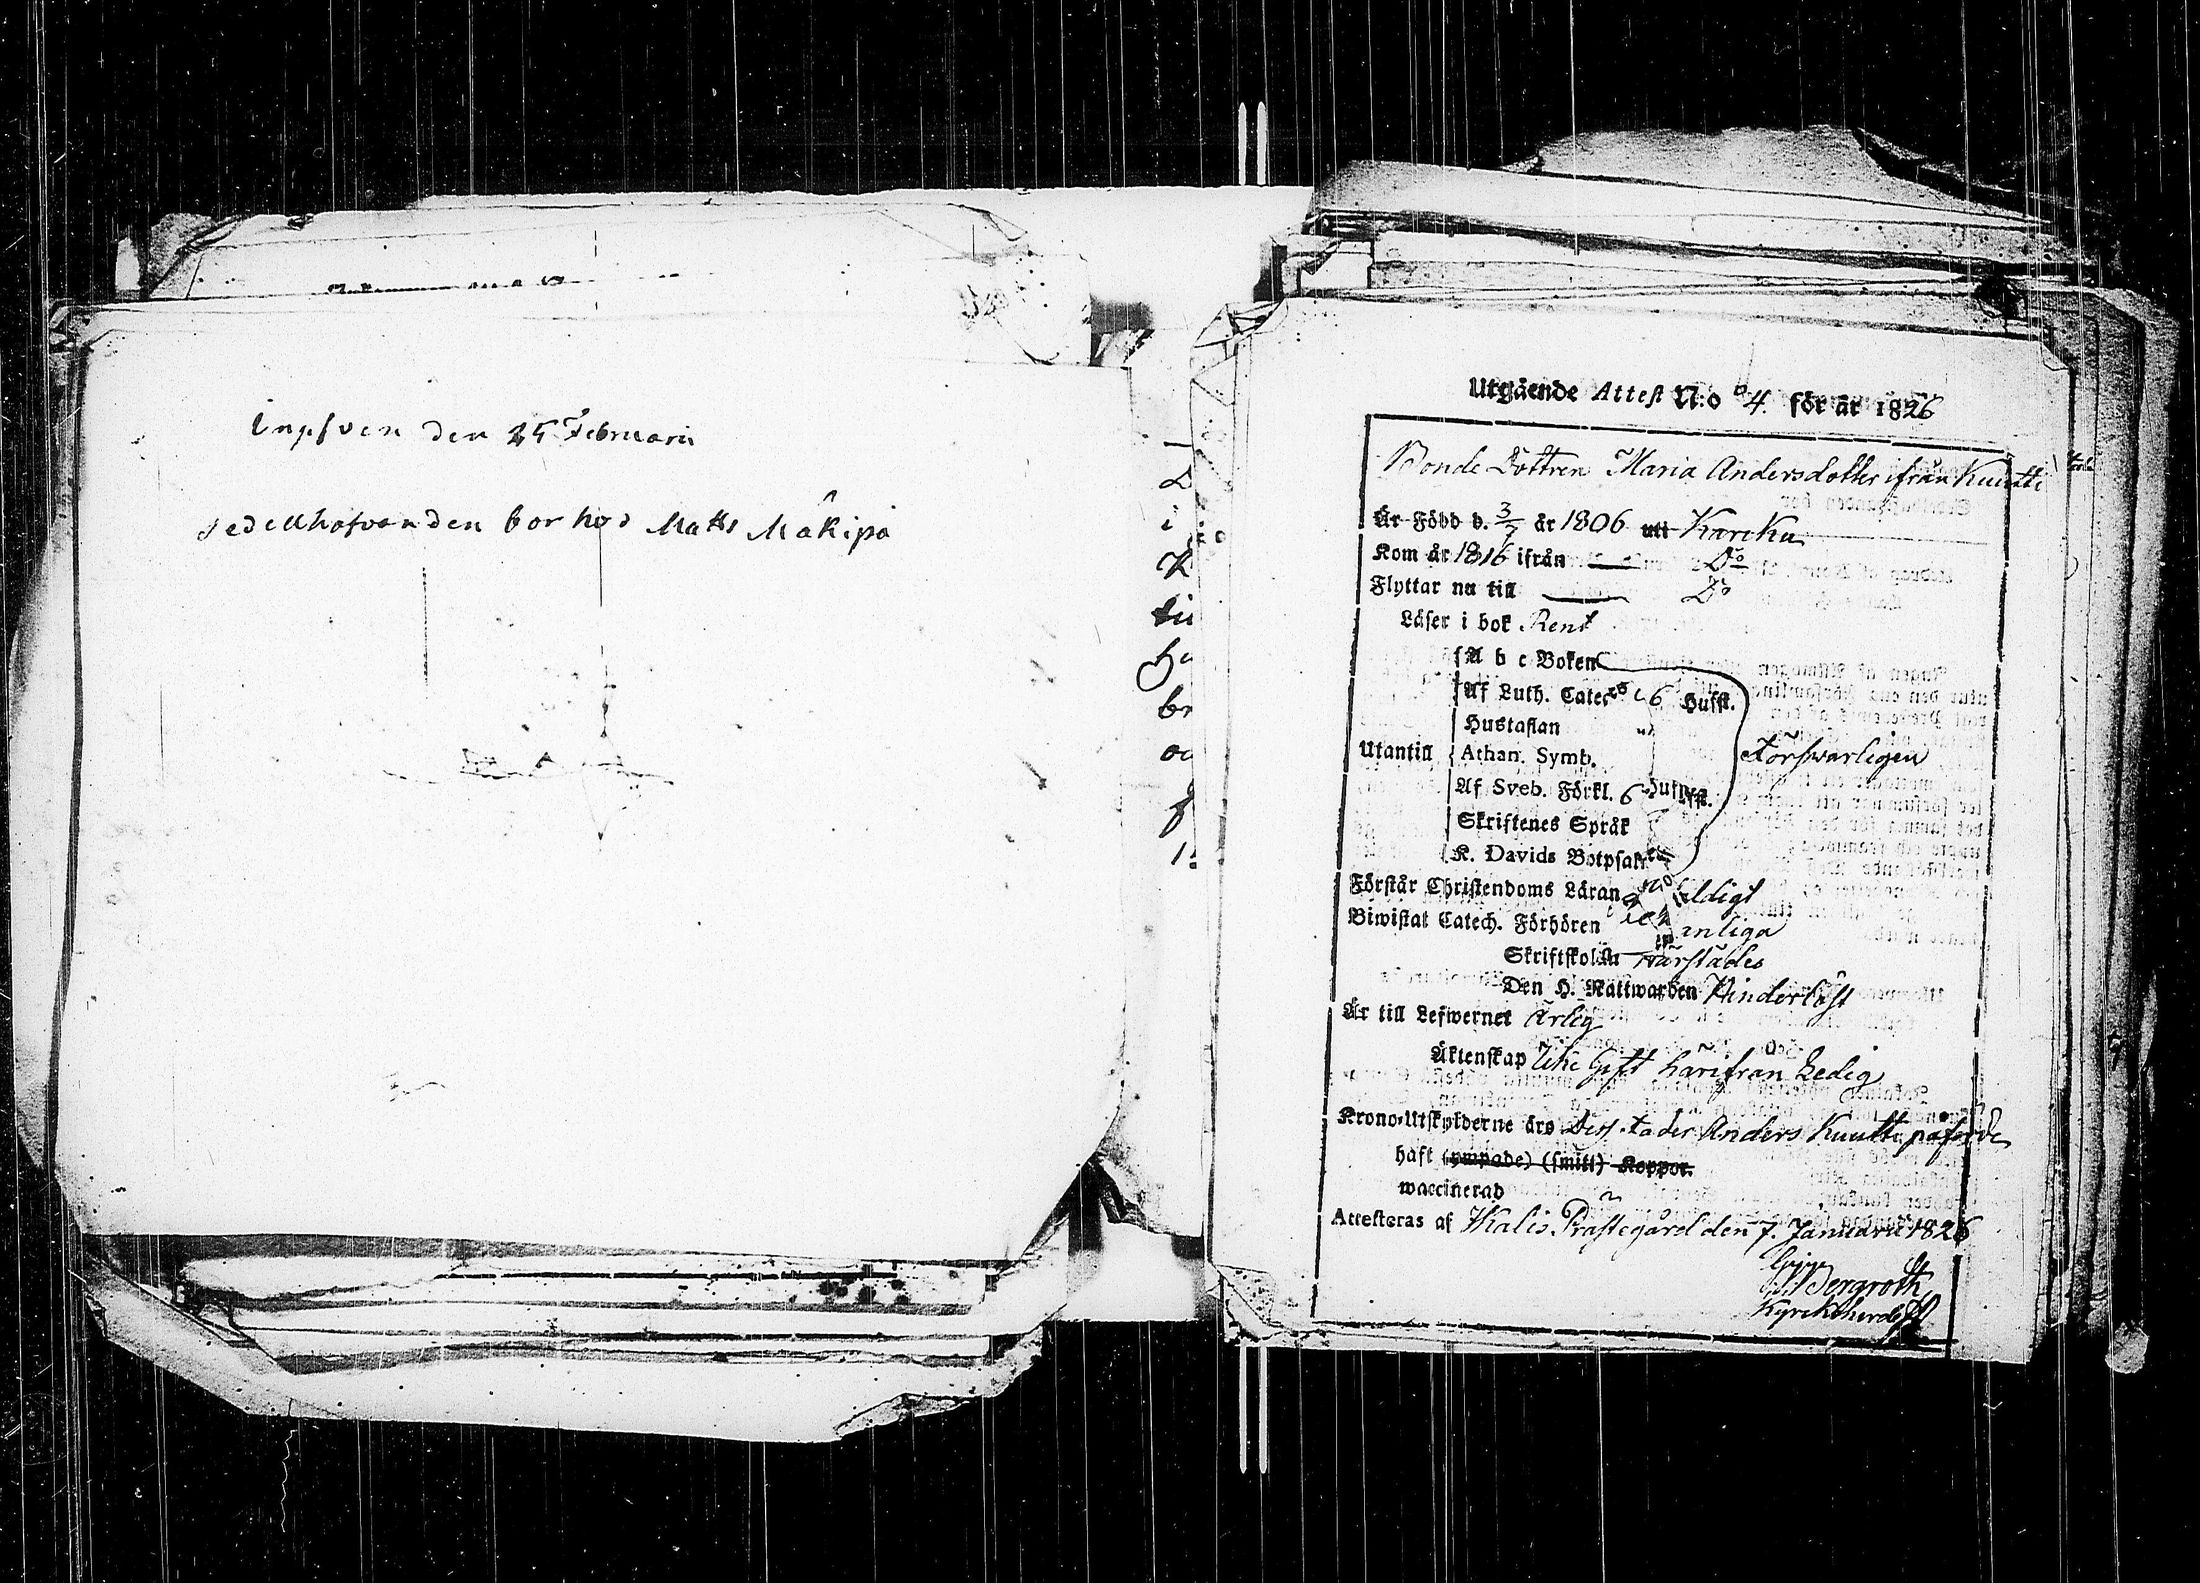 Inskrven den 25 Februarii
sedelhafvanden bor hos Matts Mäkipä
Utgående Attest N:o 4. för år 1826
Bonde Dottren Maria Andersdotter ifrån Kuutti
Är Född d. 3/7 år 1806 uti Karcku
Kom år 1816 ifrån — Do
Flyttar nu till — Do
Läser i bok Rent
A b c Boken
Af Luth. Catec 6 Hufst.
Hustaflan
Utantill Athan. Symb. Försvarligen
Af Sveb. Förkl. 6 Hufst.
Skriftenes Språk
K. Davids Botpsalm
Förstår Christendoms Läran
Biwistat Catech. Förhören
Skriftskolan härstädes
Den H. Nattwarden Hinderlöst
Är till Lefwernet Ärlig
Äktenskap Icke Gift härifrån Ledig
Krono-Utskylderne äro Dess Fader Anders Kuutti påförde
haft (ympade) (smitt) Koppor.
waccinerad
Attesteras af Ikalis Prästegård den 7. Januarii 1826
Bergroth
Kyrckoherde